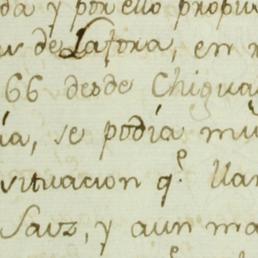 da y por ello propiu
de Lafora, en
66 desde Chigua
ía, se podía mu
situacion q.e llam
Sauz, y aun ma